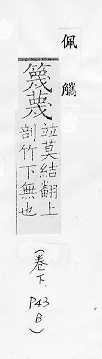 佩觿
篾蔑
並莫結翻上
剖竹下無也
(卷下. P43 B)